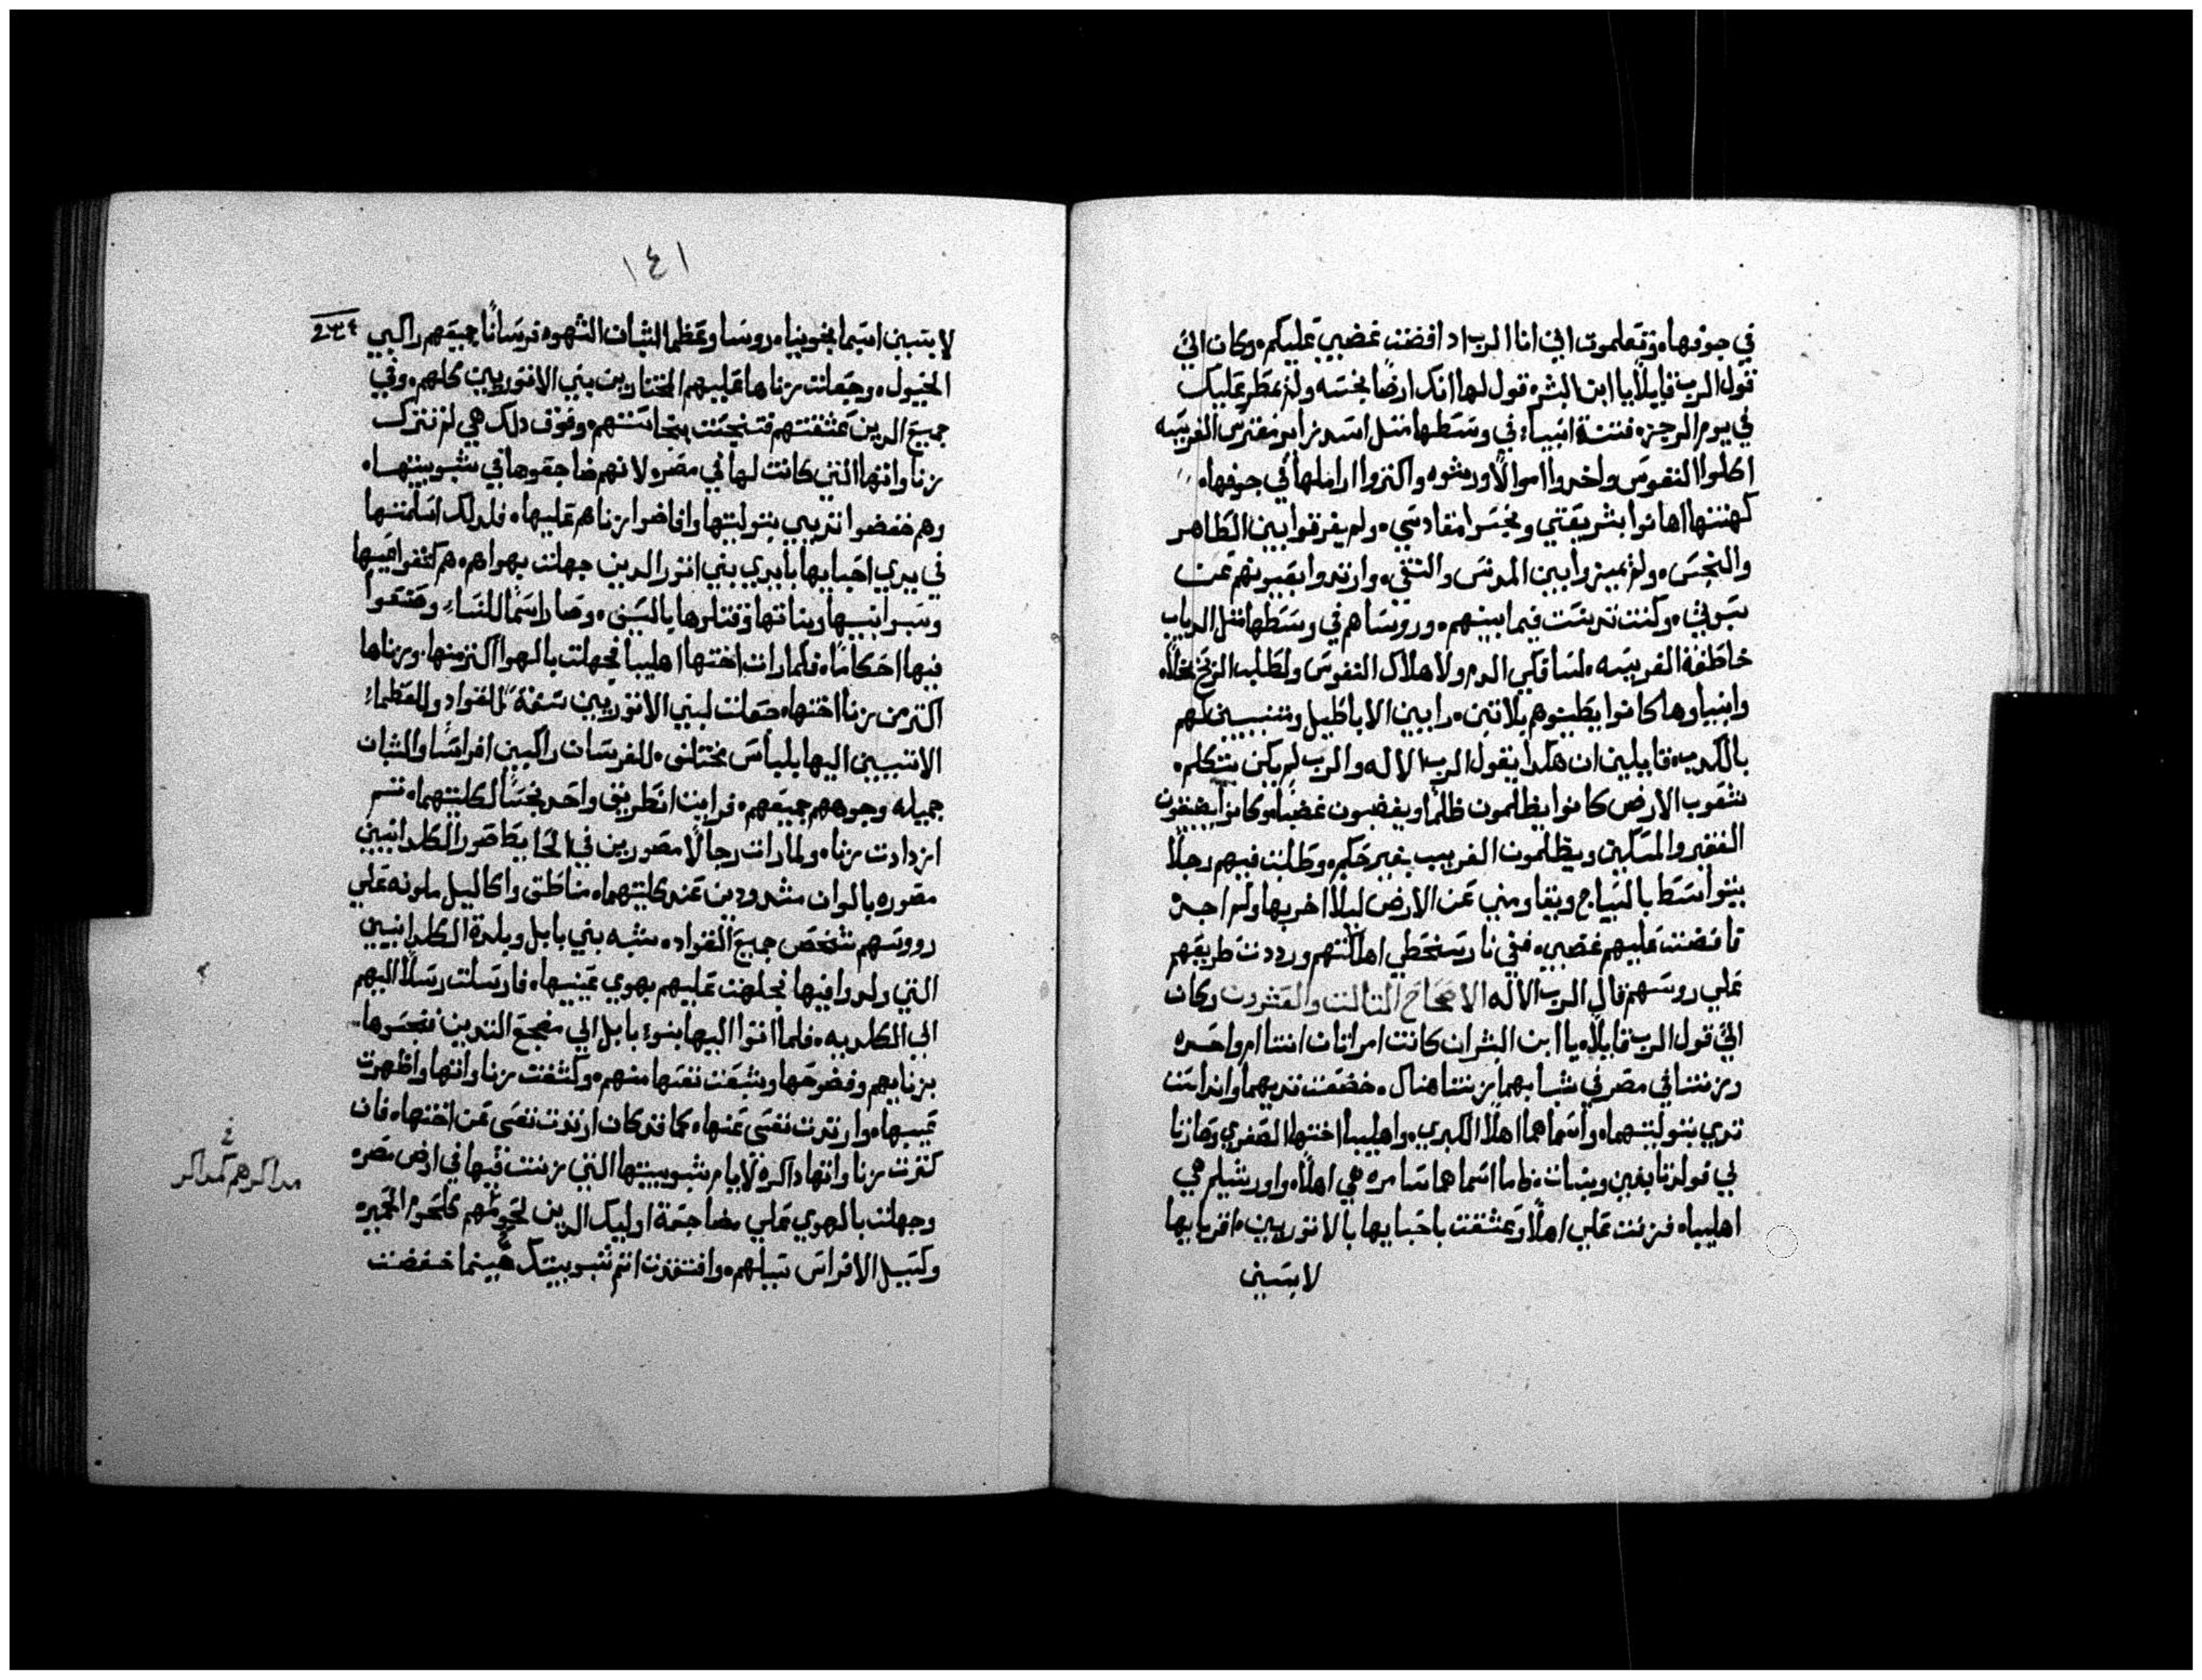 في جوفها ٥ وتعلمون اني انا الرب اد افضت غضبي عليكم ٥ وكان اليّ
قول الرب قايلًا يا ابن البشر ٥ قول لها انك ارضًا نجسه ولم يمطر عليك
في يوم الرجز ٥ فتنة انبياء في وسطها متل اسد زاير مفترس الفريسه
اكلوا النفوس واخدوا اموالًا ورشوه واكتروا اراملها في جوفها ٥
كهنتها اهانوا بشريعتي ونجسوا مقادسي ٥ ولم يفرقوا بين الطاهر
والنجس ٥ ولم يميزوا بين المدنس والنقي ٥ وارتدوا بعيونهم عن
سبوتي ٥ وكنت تدنست فيما بينهم ٥ وروساهم في وسطها متل الدياب
خاطفة الفريسه ٥ لسافكي الدم ولاهلاك النفوس ولطلب الربح بخلًا ٥
وانبياوها كانوا يطينوهم بلا تبن ٥ رايين الاباطيل ومتنبيين لهم
بالكدب ٥ قايلين ان هكدا يقول الرب الاله والرب لم يكن يتكلم ٥
شعوب الارض كانوا يظلمون ظلمًا ويغضبون غضبًا ٥ وكانوا يضعفون
الفقير والمسكين ويظلمون الغريب بغير حكم ٥ وطلبت فيهم رجلًا
يتواسط بالسياج ويقاومني عن الارض ليلا اخربها ولم اجد ٥
فافضت عليهم غضبي ٥ ففي نار سخطي اهلكتهم ورددت طريقهم
علي روسهم قال الرب الاله الاصحاح التالت والعشرون وكان
اليّ قول الرب قايلًا ٥ يا ابن البشر ان كانت امراتان ابنتا ام واحده
وزنتتا في مصر في شبابهما زنتتا هناك ٥ خضعت تديهما وانداست
تدي بتوليتهما ٥ واسماهما اهلا الكبري ٥ واهليبا اختها الصغري وصارتا
لي فولدتا بنين وبنات ٥ فاما اسماهما سامره هي اهلا ٥ واورشليم هي
اهليبا ٥ فزنت علي اهلا وعشقت باحبايها بالاتوريين ٥ اقربايها
لابسين
١٤١
لابسين اسمانجونيا ٥ روسا وعظما الشبان الشهوه فرسانًا جميعهم راكبي
الخيول ٥ وجعلت زناها عليهم المختارين بني الاتوريين كلهم ٥ وفي
جميع الدين عشقتهم فتنجست بنجاستهم ٥ وفوق دلك هي لم تترك
زناواتها التي كانت لها في مصر ٥ لانهم ضاجعوها في شبوبيتها ٥
وهم خفضوا تديي بتوليتها وافاضوا زناهم عليها ٥ فلدلك اسلمتها
في يدي احبايها بايدي بني اتور الدين جهلت بهواهم ٥ هم كشفوا عيبها
وسبوا بنيها وبناتها وقتلوها بالسيف ٥ وصاراسمًا للنساء وصنعوا
فيها احكامًا ٥ فلما رات اختها اهليبا فجهلت بالهوا اكتر منها ٥ وزناها
اكتر من زنا اختها ٥ صعلت لبني الاتوريين سفهةً للقواد وللعظماء
الاتيين اليها بلباس مختلف ٥ للفرسان راكبين افراسًا والشبان
جميله وجوههم جميعهم ٥ فرايت ان طريق واحد نجسًا لكلتيهما ٥ تم
ازدادت زنا ٥ ولما رات رجالًا مصورين في الحايط صور الكلدانيين
مصوره بالوان مشدودين عند كليتهما ٥ مناطق واكاليل ملونه علي
رووسهم شخص جميع القواد ٥ شبه بني بابل وبلدة الكلدانيين
التي ولدوا فيها فجهلت عليهم بهوي عينيها ٥ فارسلت رسلًا اليهم
الي الكلديه ٥ فلما اتوا اليها بنوء بابل الي مضجع التديين فنجسوها
بزنايهم وفضوحها وشبعت نفسها منهم ٥ وكشفت زناواتها واظهرت
عيبها ٥ وارتدت نفسي عنها ٥ كما قد كان ارتدت نفسي عن اختها ٥ فان
كترت زناواتها داكرة لايام شبوبيتها التي زنت فيها في ارض مصر ٥
وجهلت بالهوي علي مضاجعة اوليك الدين لحومهم كلحوم الحمير ٥
وكسيل الافراس سيلهم ٥ وافتقدت اتم شبوبيتك حينما خفضت
مداكرهم كمداكر